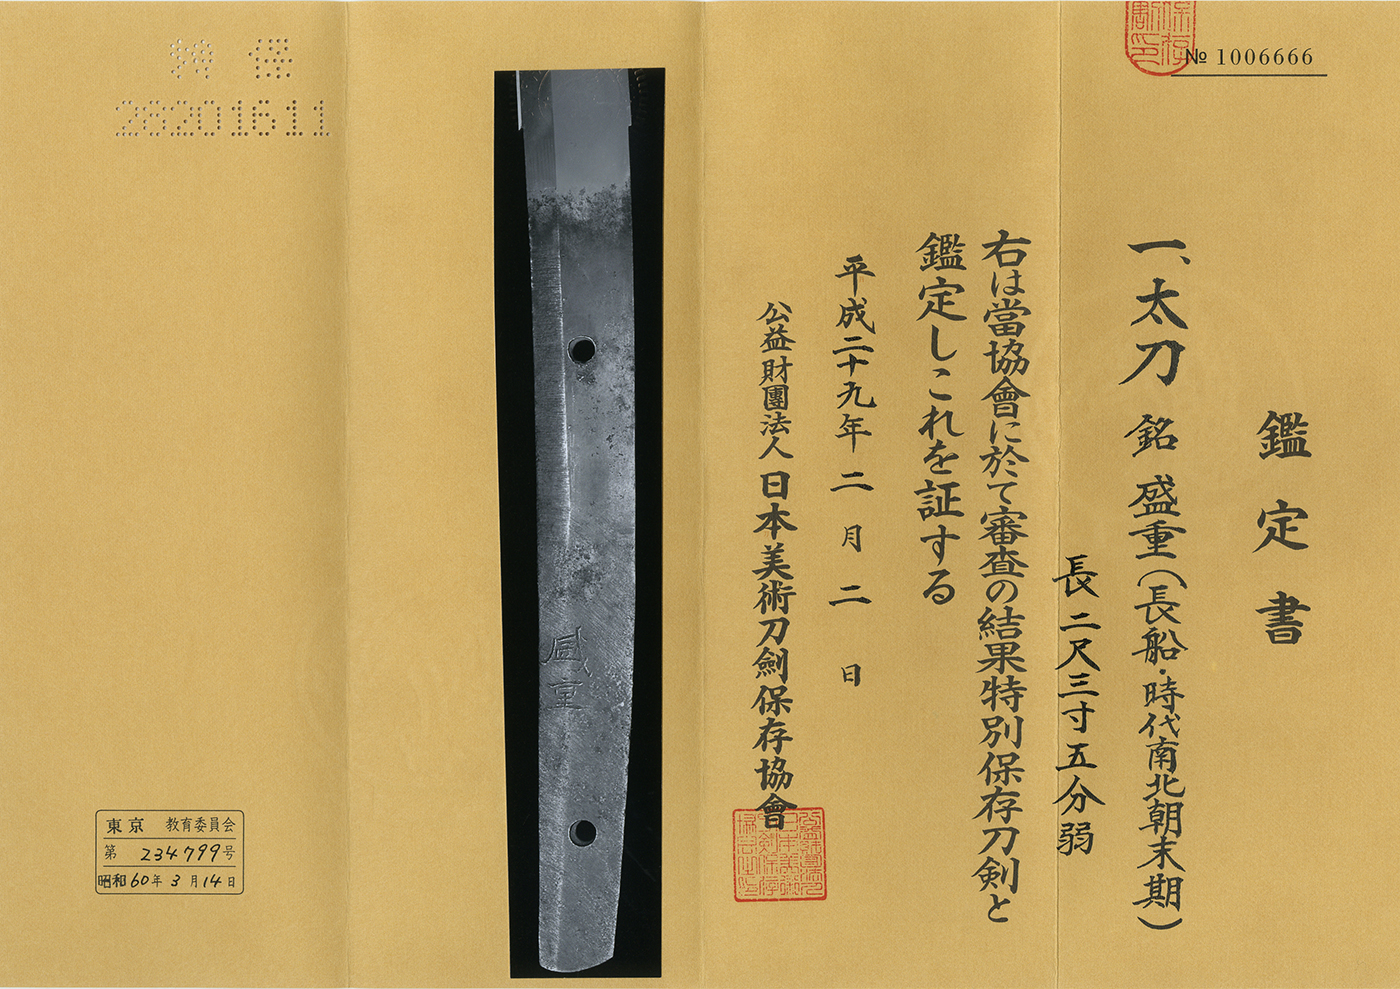 № 1006666
鑑定書
一、太刀 銘 盛重(長船・時代南北朝末期)
長二尺三寸五分弱
右は當協會に於て審査の結果特別保存刀剣と
鑑定しこれを証する
平成二十九年二月二日
公益財團法人日本美術刀劍保存協會
盛重
特保
28201611
東京 教育委員会
第 234799号
昭和60年3月14日